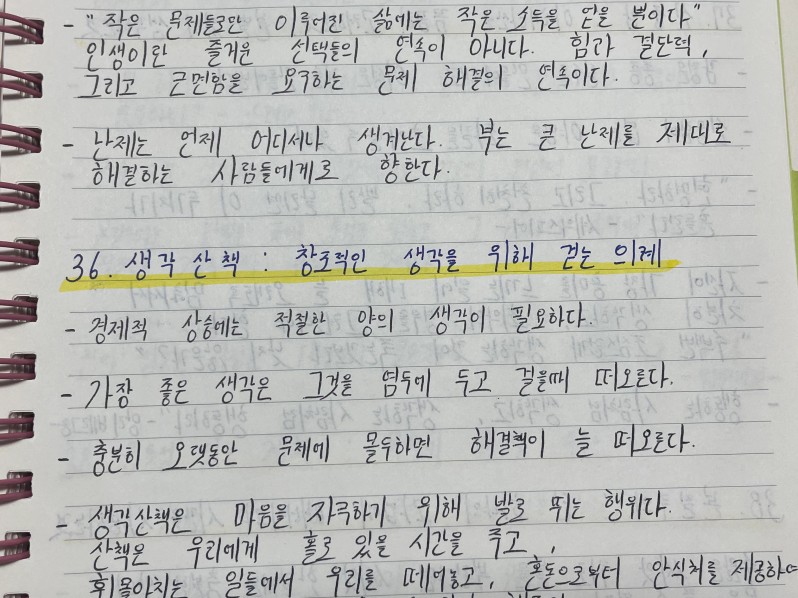 - "작은 문제들로만 이루어진 삶에는 작은 소득을 얻을 뿐이다"
인생이란 즐거운 선택들의 연속이 아니다. 힘과 결단력,
그리고 근면함을 요구하는 문제 해결의 연속이다.
- 난제는 언제 어디서나 생겨난다. 부는 큰 난제를 제대로
해결하는 사람들에게로 향한다.
36. 생각 산책 : 창조적인 생각을 위해 걷는 의례
- 경제적 상승에는 적절한 양의 생각이 필요하다.
- 가장 좋은 생각은 그것을 염두에 두고 걸을때 떠오른다.
- 충분히 오랫동안 문제에 몰두하면 해결책이 늘 떠오른다.
- 생각산책은 마음을 자극하기 위해 발로 뛰는 행위다.
산책은 우리에게 홀로 있을 시간을 주고,
휘몰아치는 일들에서 우리를 떼어놓고, 혼돈으로부터 안식처를 제공하여